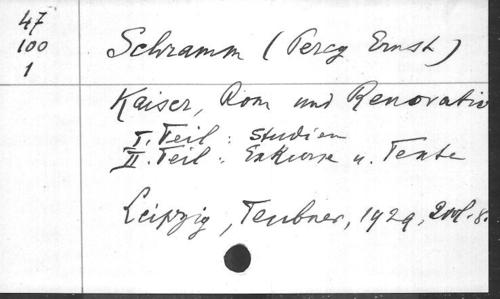 47
100
1
Schramm (Percy Ernst)
Kaiser, Rom und Renovatio
I. Teil: Studien
II. Teil: Exkurse u. Texte
Leipzig, Teubner, 1929, 2 vol. 8.